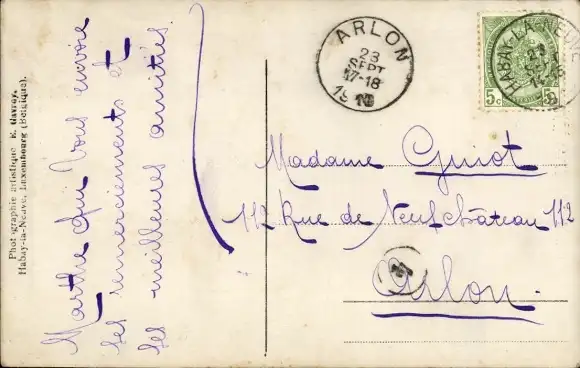 Marthe qui vous envoie
ses remerciements et
ses meilleures amitiés
Phot graphie artistique E. Gavroy,
Habay-la-Neuve, Luxembourg (Belgique).
ARLON
23
SEPT
17-18
19
HABAY-LA-NEUVE
5c
Madame Guiot
112 Rue de Neufchâteau 112
Arlon.